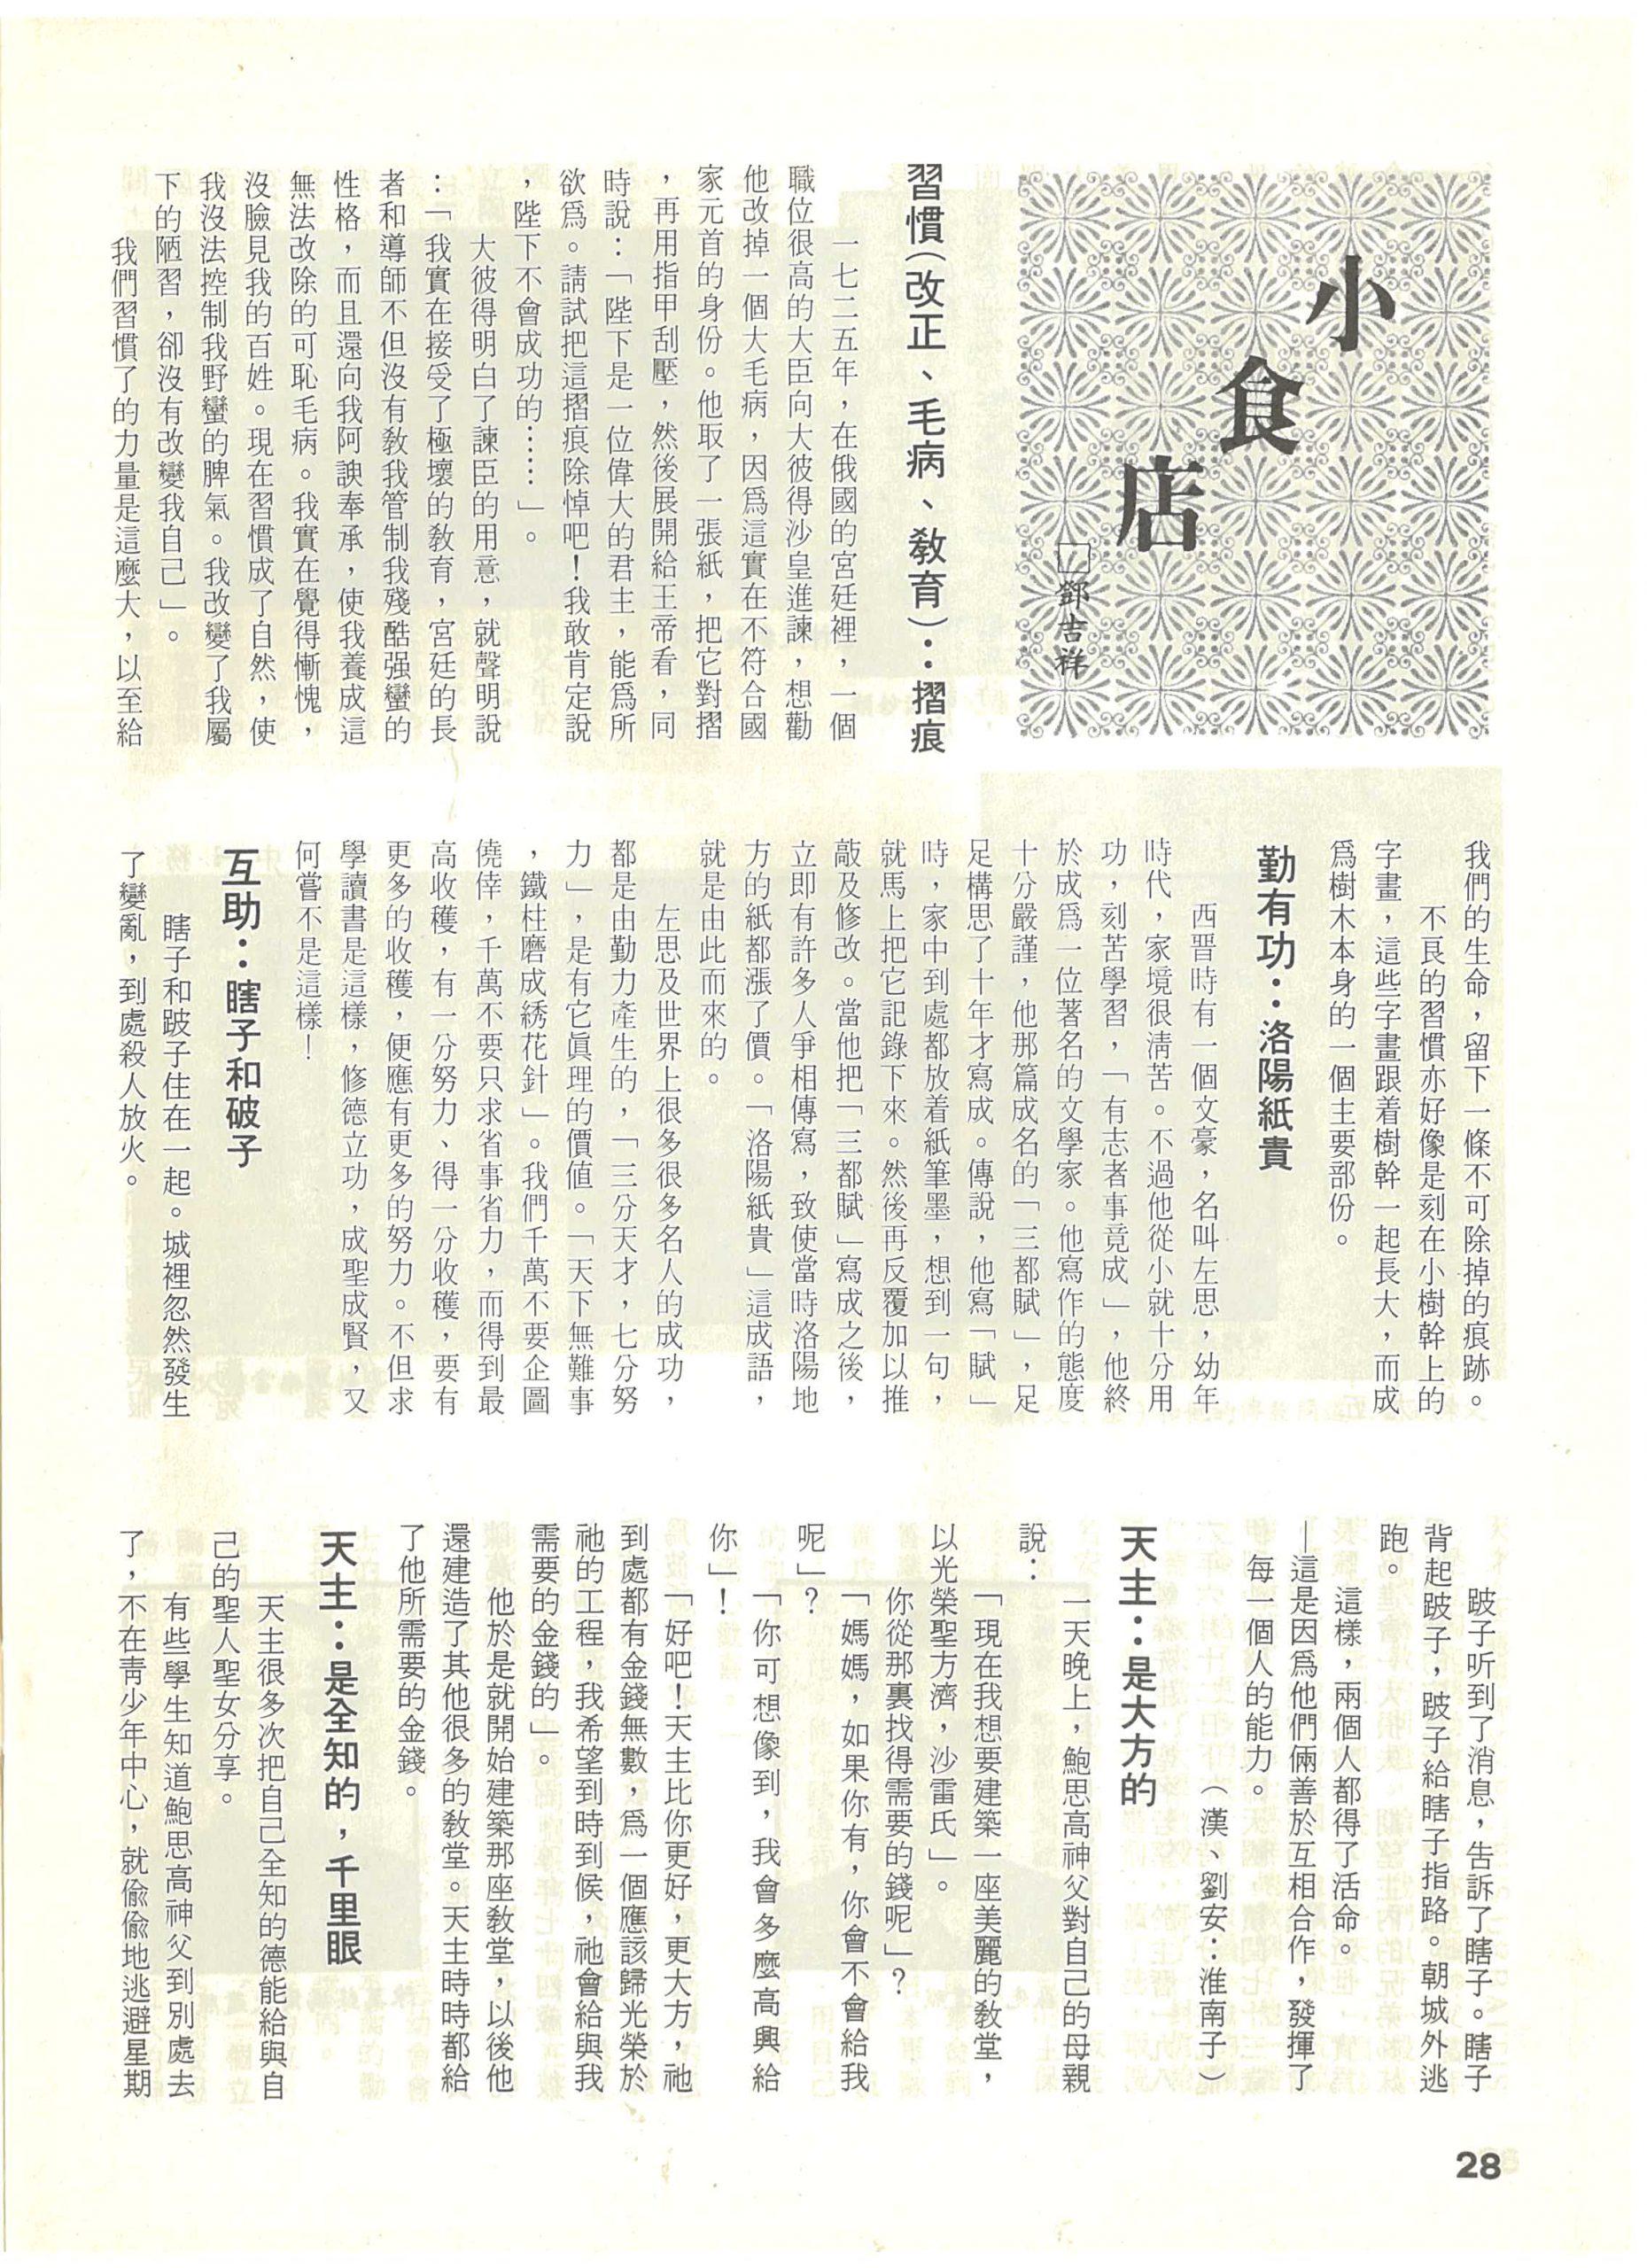 小食店
□鄧吉祥
習慣(改正、毛病、敎育):摺痕
一七二五年,在俄國的宮廷裡,一個
職位很高的大臣向大彼得沙皇進諫,想勸
他改掉一個大毛病,因爲這實在不符合國
家元首的身份。他取了一張紙,把它對摺
,再用指甲刮壓,然後展開給王帝看,同
時說:「陛下是一位偉大的君主,能爲所
欲爲。請試把這摺痕除悼吧!我敢肯定說
,陛下不會成功的……」。
大彼得明白了諫臣的用意,就聲明說
:「我實在接受了極壞的敎育,宮廷的長
者和導師不但沒有敎我管制我殘酷强蠻的
性格,而且還向我阿諛奉承,使我養成這
無法改除的可恥毛病。我實在覺得慚愧,
沒臉見我的百姓。現在習慣成了自然,使
我沒法控制我野蠻的脾氣。我改變了我屬
下的陋習,卻沒有改變我自己」。
我們習慣了的力量是這麼大,以至給
我們的生命,留下一條不可除掉的痕跡。
不良的習慣亦好像是刻在小樹幹上的
字畫,這些字畫跟着樹幹一起長大,而成
爲樹木本身的一個主要部份。
勤有功:洛陽紙貴
西晋時有一個文豪,名叫左思,幼年
時代,家境很淸苦。不過他從小就十分用
功,刻苦學習,「有志者事竟成」,他終
於成爲一位著名的文學家。他寫作的態度
十分嚴謹,他那篇成名的「三都賦」,足
足構思了十年才寫成。傳說,他寫「賦」
時,家中到處都放着紙筆墨,想到一句,
就馬上把它記錄下來。然後再反覆加以推
敲及修改。當他把「三都賦」寫成之後,
立即有許多人爭相傳寫,致使當時洛陽地
方的紙都漲了價。「洛陽紙貴」這成語,
就是由此而來的。
左思及世界上很多很多名人的成功,
都是由勤力產生的,「三分天才,七分努
力」,是有它眞理的價值。「天下無難事
,鐵柱磨成綉花針」。我們千萬不要企圖
僥倖,千萬不要只求省事省力,而得到最
高收穫,有一分努力、得一分收穫,要有
更多的收穫,便應有更多的努力。不但求
學讀書是這樣,修德立功,成聖成賢,又
何嘗不是這樣!
互助:瞎子和破子
瞎子和跛子住在一起。城裡忽然發生
了變亂,到處殺人放火。
跛子听到了消息,告訴了瞎子。瞎子
背起跛子,跛子給瞎子指路。朝城外逃
跑。
這樣,兩個人都得了活命。
—這是因爲他們倆善於互相合作,發揮了
每一個人的能力。
(漢、劉安:淮南子)
天主:是大方的
一天晚上,鮑思高神父對自己的母親
說:
「現在我想要建築一座美麗的敎堂,
以光榮聖方濟,沙雷氏」。
你從那裏找得需要的錢呢」?
「媽媽,如果你有,你會不會給我
呢」?
「你可想像到,我會多麼高興給
你」!
「好吧!天主比你更好,更大方,祂
到處都有金錢無數,爲一個應該歸光榮於
祂的工程,我希望到時到候,祂會給與我
需要的金錢的」。
他於是就開始建築那座敎堂,以後他
還建造了其他很多的敎堂。天主時時都給
了他所需要的金錢。
天主:是全知的,千里眼
天主很多次把自己全知的德能給與自
己的聖人聖女分享。
有些學生知道鮑思高神父到別處去
了,不在靑少年中心,就偸偸地逃避星期
28